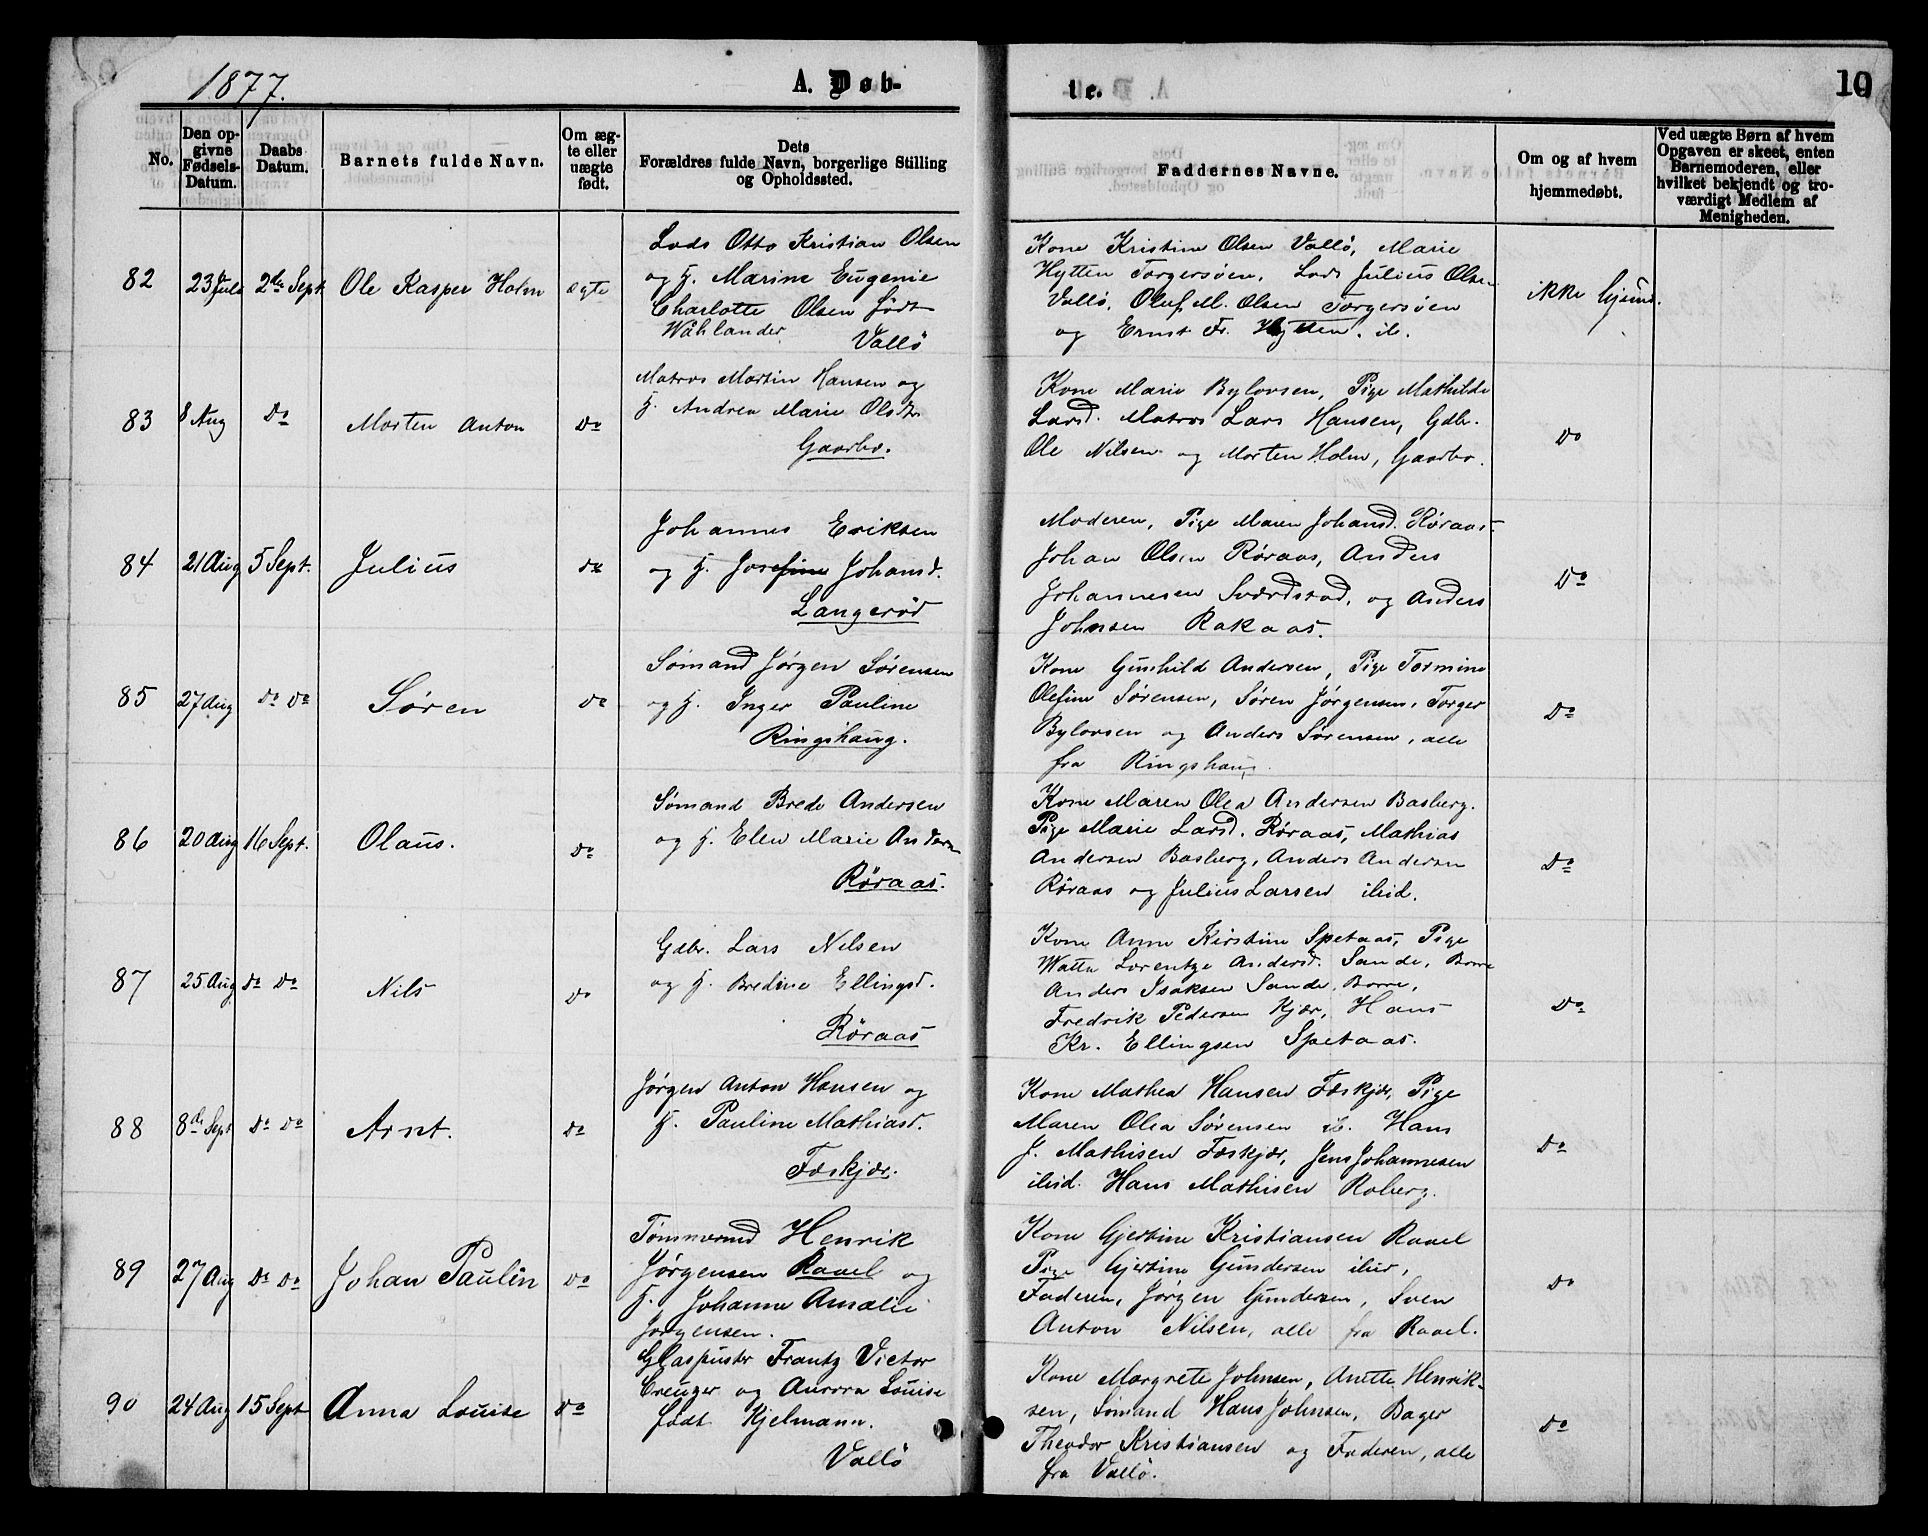 1877.
A. Døb-
te.
10
No.
Den op-
givne
Fødsels-
Datum.
Daabs
Datum.
Barnets fulde Navn.
Om æg-
te eller
uægte
født.
Dets
Forældres fulde Navn, borgerlige Stilling
og Opholdssted.
Faddernes Navne.
Om og af hvem
hjemmedøbt.
Ved uægte Børn af hvem
Opgaven er skeet, enten
Barnemoderen, eller
hvilket bekjendt og tro-
værdigt Medlem af
Menigheden.
82 23 Juli 2den Sept Ole Kasper Holm ægte
Lods Otto Kristian Olsen
og H. Marine Eugenie
Charlotte Olsen født
Wåhlander.
Vallö
Kone Kristine Olsen Vallö, Marie
Hytten Torgersöen, Lods Julius Olsen
Vallö, Oluf M. Olsen Torgersöen
og Ernst Fr. Hytten. ib.
ikke hjemd.
83 8 Aug Do Morten Anton Do
Matros Martin Hansen og
H. Andrea Marie Olsdtr
Gaarbo.
Kone Marie Bylovsen, Pige Mathilde
Larsd. Matros Lars Hansen, Gdbr.
Ole Nilsen og Morten Holm, Gaarbo.
Do
84 21 Aug 5 Sept. Julius do
Johannes Eriksen
og H. Josefine Johansd.
Langerød
Moderen, Pige Maren Johansd. Røraas.
Johan Olsen Røraas, Anders
Johannesen Sværdstad, og Anders
Johnsen Rakaas.
Do
85 27 Aug Do Do Søren do
Sømand Jørgen Sørensen
og H. Inger Pauline
Ringshaug.
Kone Gunhild Andersen, Pige Tormine
Olefine Sørensen, Søren Jørgensen, Torger
Bylovsen og Anders Sørensen, alle
fra Ringshaug
Do
86 20 Aug 16 Sept. Olaus. do
Sømand Brede Andersen
og H. Elen Marie Anders
Røraas.
Kone Maren Olea Andersen Basberg.
Pige Marie Larsd. Røraas, Mathias
Andersen Basberg, Anders Andersen
Røraas og Julius Larsen ibid.
Do
87 25 Aug Do Do Nils do
Gdbr. Lars Nilsen
og H. Bredine Ellingsd.
Røraas
Kone Anne Kirstine Spetaas, Pige
Watta Lorentze Andersd. Sande, Borre
Anders Isaksen Sande, Borre,
Fredrik Pedersen Kjær, Hans
Kr. Ellingsen Spetaas.
Do
88 8de Sept Do Do Arnt. do
Jørgen Anton Hansen og
H. Pauline Mathiasd.
Feskjær.
Kone Mathea Hansen Feskjær, Pige
Maren Olea Sørensen ib. Hans
J. Mathisen Feskjær, Jens Johannesen
ibid. Hans Mathisen Roberg.
Do
89 27 Aug Do Do Johan Paulin do
Tømmermd Henrik
Jørgensen Ravel og
H. Johanne Amalie
Jørgensen.
Kone Gjertine Kristiansen Ravel
Pige Gjertine Gundersen ibid,
Faderen, Jørgen Gundersen, Sven
Anton Nilsen, alle fra Ravel.
Do
90 24 Aug 15 Sept Anna Louise do
Glaspuster Frantz Victor
Creuger og Aurora Louise
født Kjelmann.
Vallö
Kone Margrete Johnsen, Anette Henrik-
sen, Sømand Hans Johnsen, Bager
Theodor Kristiansen og Faderen, alle
fra Vallö.
Do